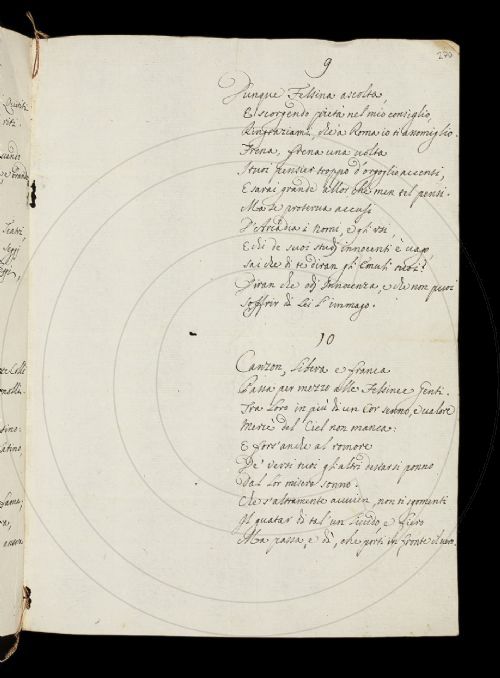 270
9
Dunque Felsina ascolta,
E scorgendo pietà nel mio consiglio,
Ringraziami, ch'è a Roma io ti assomiglio.
Frena, frena una volta
I tuoi pensier troppo d'orgoglio accensi,
E sarai grande allor che men tel pensi.
Ma se proterva accusi
D'Arcadia i nomi, e gli usi,
E di de suoi studj innocenti è vago,
sai che di te diran gli Emuli tuoi?
Diran che odj Innocenza, e che non puoi
soffrir di Lei l'immago.
10
Canzon, libera e franca
Passa per mezzo alle Felsinee Genti.
Tra loro in più di un Cor senno, e valore
Mercè del Ciel non manca:
E fors'anche al romore
De' versi tuoi gli altri destarsi ponno
Dal lor misero sonno.
Che s'altramente avvien, non ti sgomenti
Il guatar di tal'un livido, e fiero
Ma passa, e dì, che porti in fronte il vero.